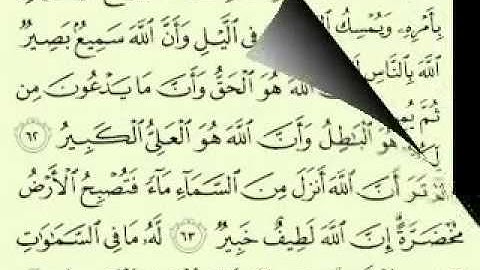 بِأَمْرِهِۦ وَيُمْسِكُ فِي ٱلَّيْلِ وَأَنَّ ٱللَّهَ سَمِيعٌۢ بَصِيرٌ
ٱللَّهَ بِٱلنَّاسِ ٱللَّهَ هُوَ ٱلْحَقُّ وَأَنَّ مَا يَدْعُونَ مِن
ثُمَّ هُوَ ٱلْبَٰطِلُ وَأَنَّ ٱللَّهَ هُوَ ٱلْعَلِيُّ ٱلْكَبِيرُ ٦٢
تَرَ أَنَّ ٱللَّهَ أَنزَلَ مِنَ ٱلسَّمَآءِ مَآءً فَتُصْبِحُ ٱلْأَرْضُ
مُخْضَرَّةً إِنَّ ٱللَّهَ لَطِيفٌ خَبِيرٌ ٦٣ لَّهُۥ مَا فِي ٱلسَّمَٰوَٰتِ